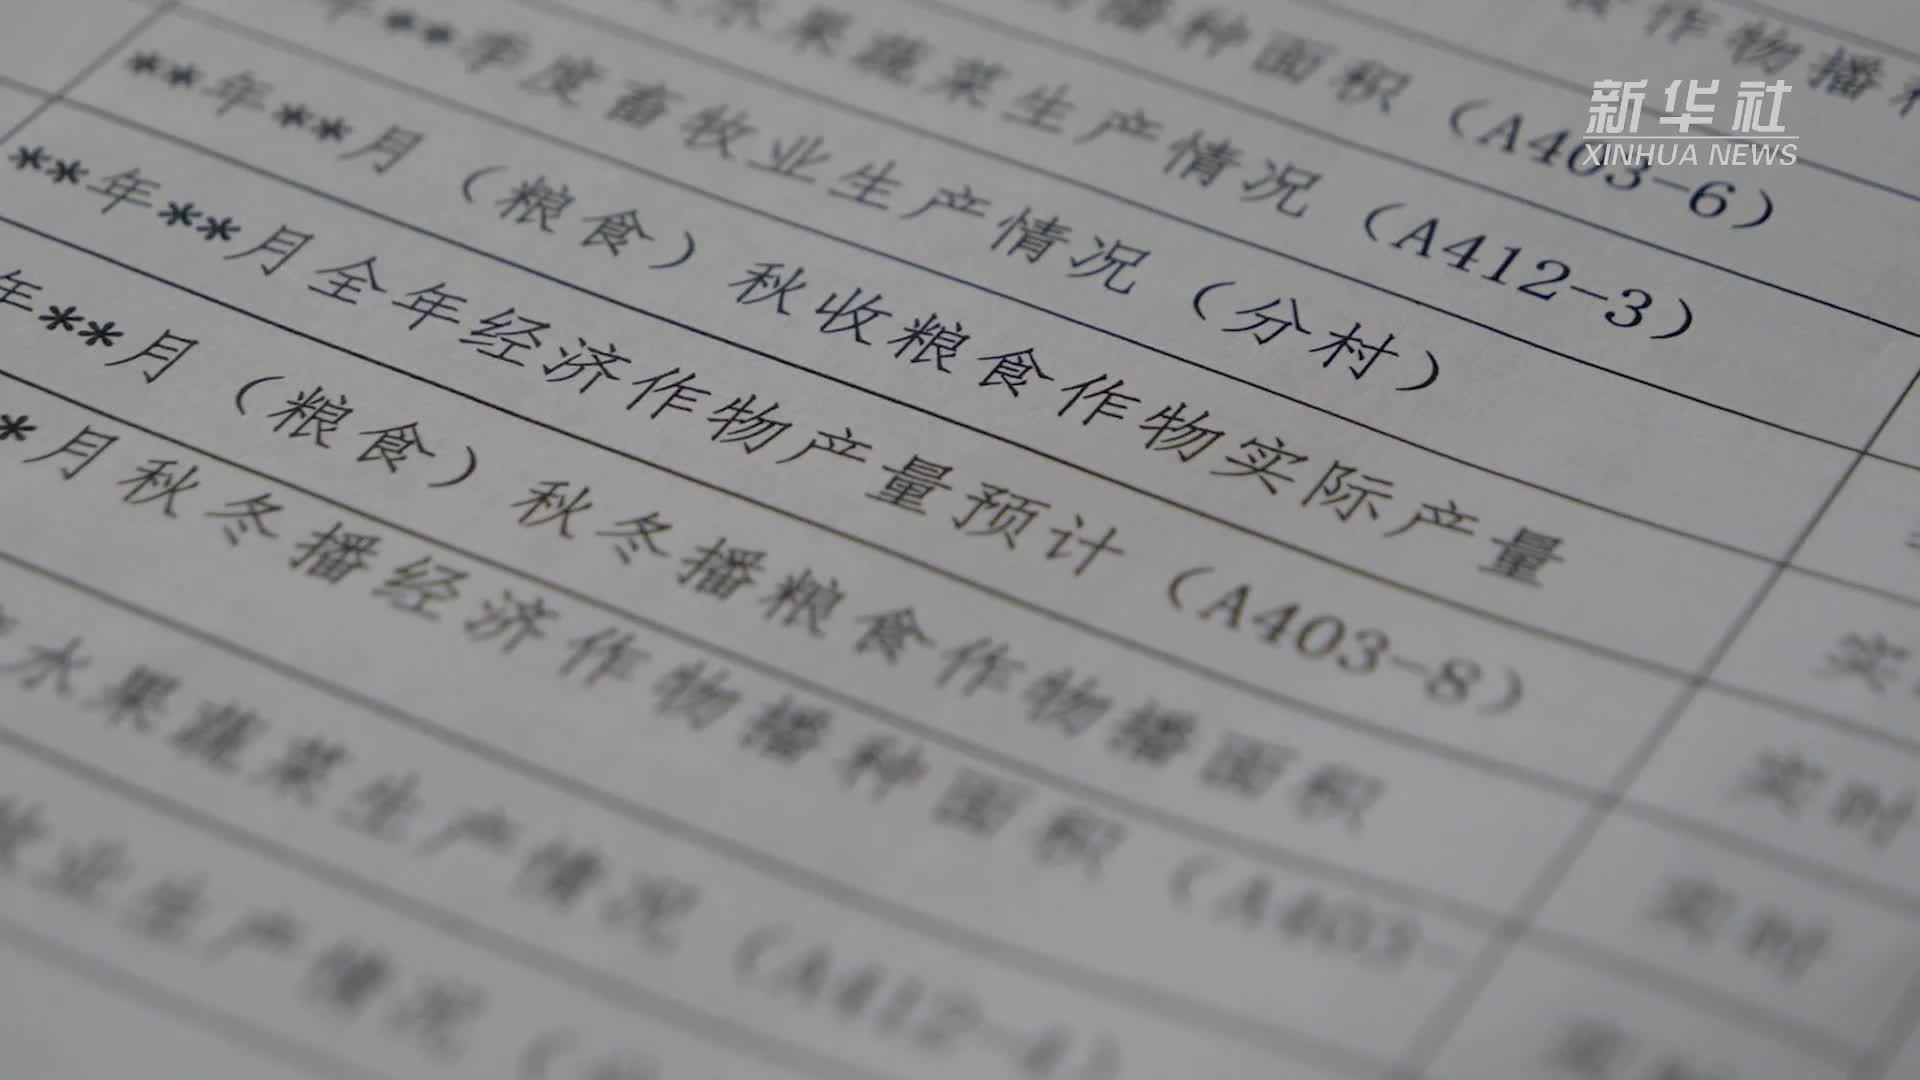 作物播
播种面积（A403-6）
水果蔬菜生产情况（A412-3）
年**季度畜牧业生产情况（分村）
**年**月（粮食）秋收粮食作物实际产量
**年**月全年经济作物产量预计（A403-8）
年**月（粮食）秋冬播粮食作物播面积
*月秋冬播经济作物播种面积（A403-
水果蔬菜生产情况（A412-4）
牧业生产情况（
实时
实时
新华社
XINHUA NEWS